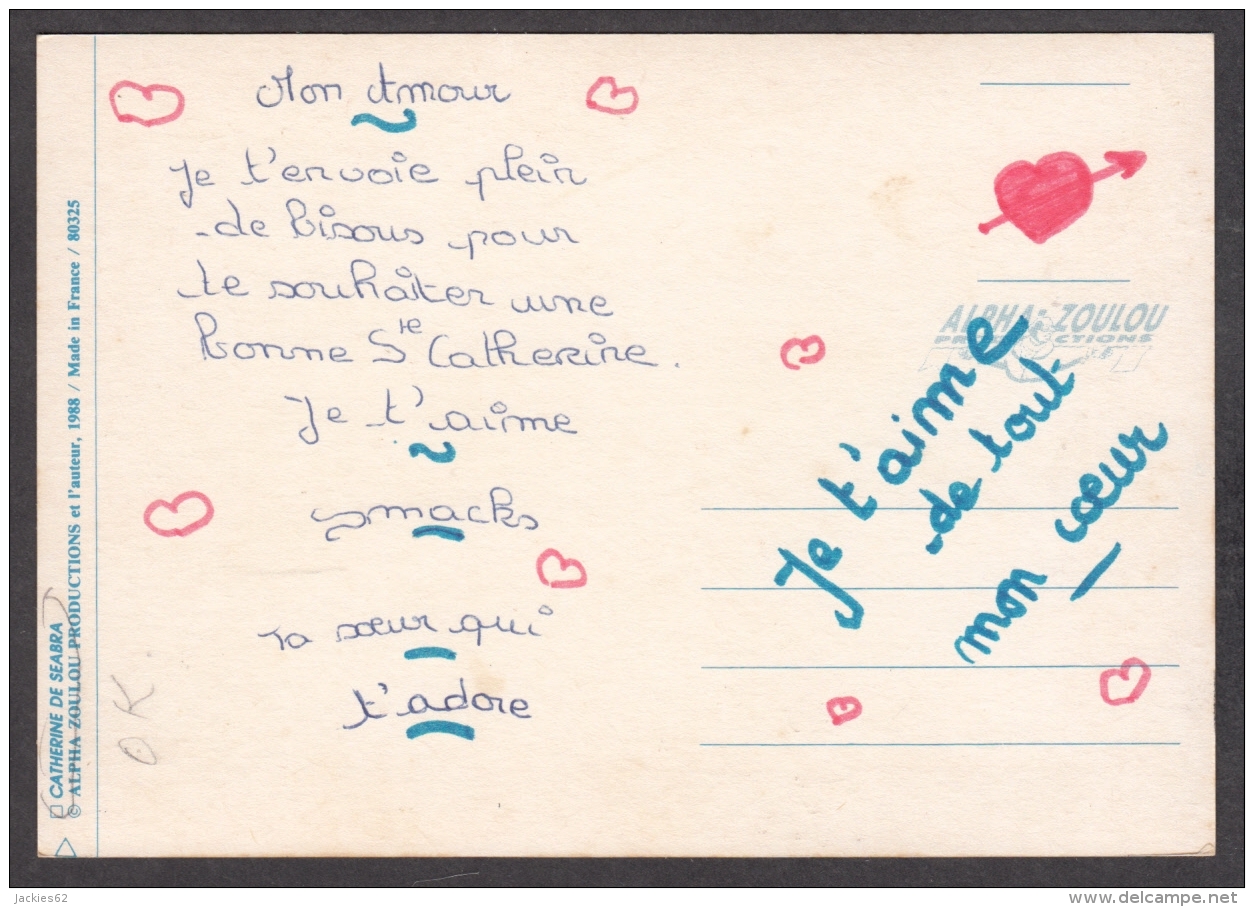 Mon Amour
Je t'envoie plein
de bisous pour
te souhaiter une
bonne Ste Catherine.
Je t'aime
smacks
ta sœur qui
t'adore
Je t'aime
de tout
mon cœur
ALPHA-ZOULOU
PRODUCTIONS
CATHERINE DE SEABRA
© ALPHA ZOULOU PRODUCTIONS et l'auteur, 1988 / Made in France / 80325
O.K
jackies62
www.delcampe.net